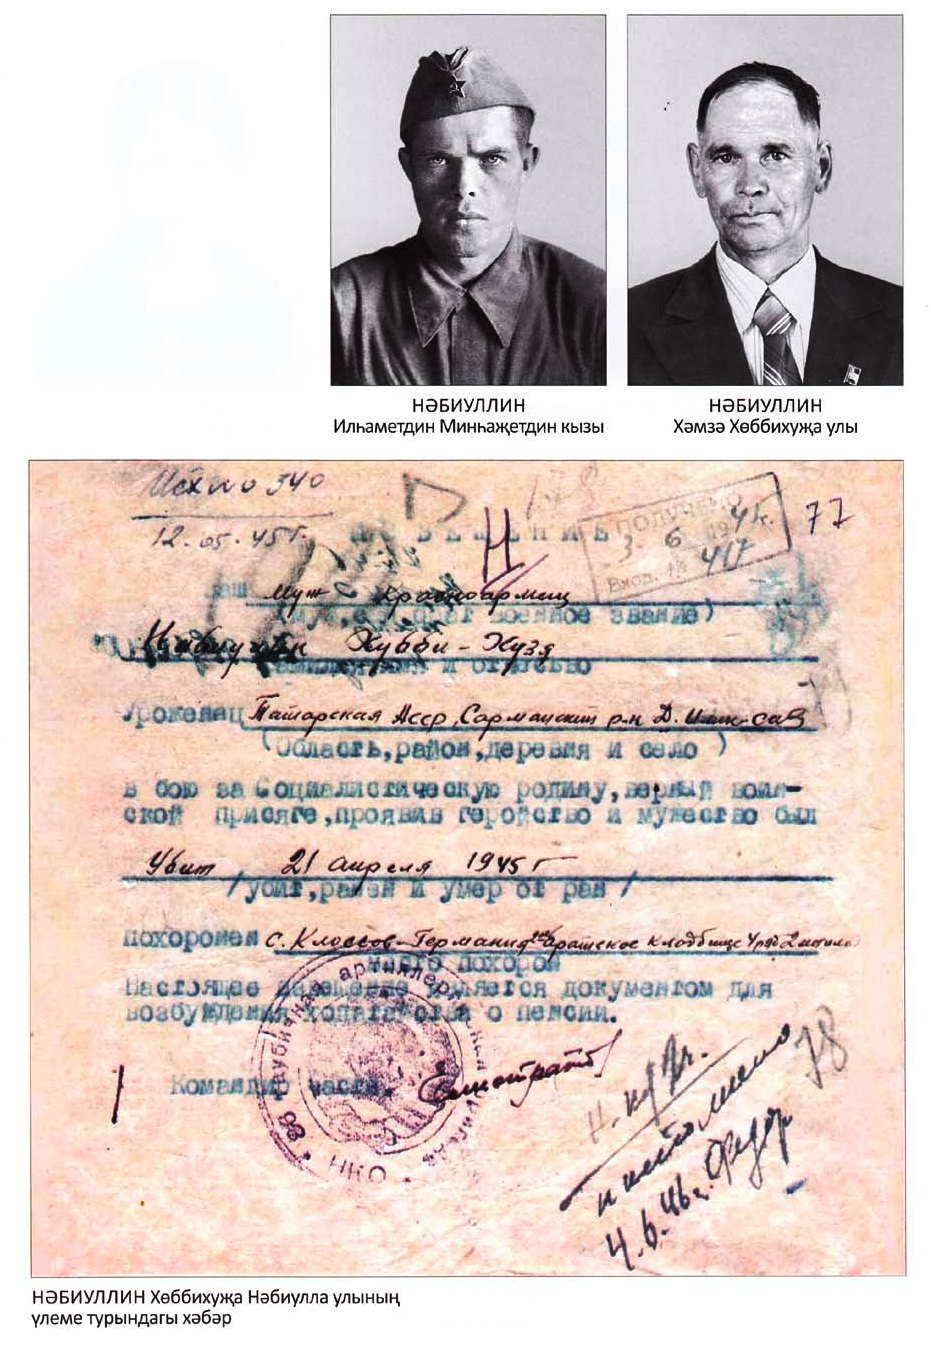 НӘБИУЛЛИН
Илһаметдин Минһаҗетдин кызы
НӘБИУЛЛИН
Хәмзә Хөббихуҗа улы
Исх № 340
12.05.45г.
ИЗВЕЩЕНИЕ
Н
ПОЛУЧЕНО
3. 6 194
Вход. № 417
77
Ваш муж красноармеец
(муж, воинское звание)
Набиуллин Хубби-Хузя
Уроженец Татарская Асср, Сармановский р-н Д.
(Область, район, деревня и село)
в бою за Социалистическую родину, верный воин-
ской присяге, проявив геройство и мужество был
Убит 21 апреля 1945 г
/убит, ранен и умер от ран/
похоронен с. Клоссов-Германия братское кладбище 4 ряд 2 могила
место похорон
Настоящее извещение является документом для
возбуждения ходатайства о пенсии.
Командир части
НКО
78
4.6.46г.
НӘБИУЛЛИН Хөббихуҗа Нәбиулла улының
үлеме турындагы хәбәр